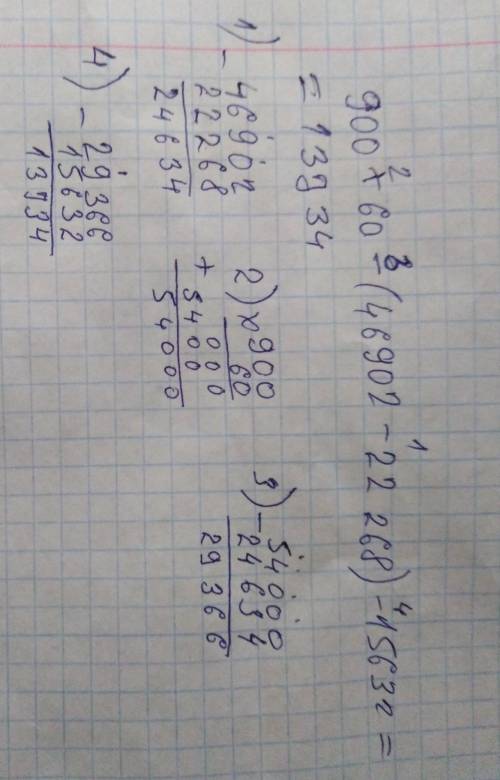 2 3 1 4
900 × 60 - (46902 - 22 268) - 15632 =
= 13934
1) - 46902
22268
24634
2) × 900
60
000
+ 5400
54000
3) - 54000
24634
29366
4) - 29366
15632
13734